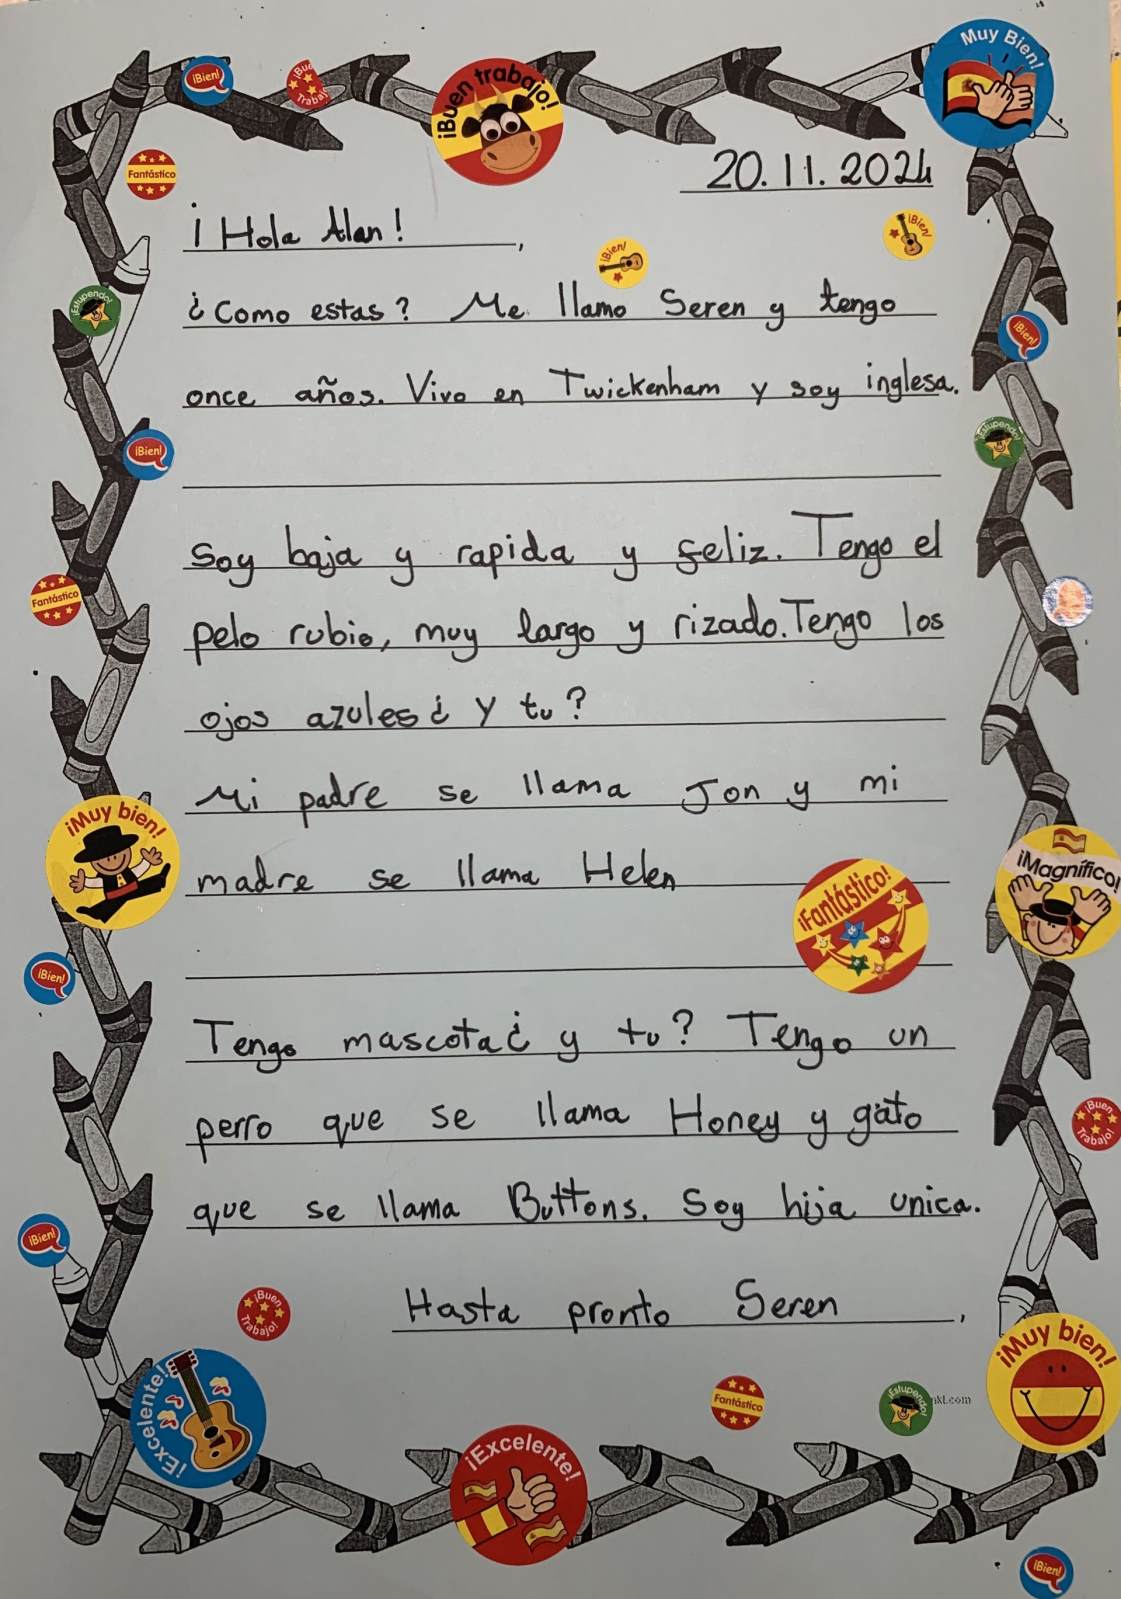 Muy Bien!
¡Bien!
¡Buen
Trabajo!
¡Buen trabajo!
Fantástico
20.11.2024
¡Hola Alan!,
¡Bien!
¡Bien!
¡Estupendo!
¿Como estas? Me llamo Seren y tengo
¡Bien!
once años. Vivo en Twickenham y soy inglesa.
¡Bien!
¡Estupendo!
Soy baja y rapida y feliz. Tengo el
Fantástico
pelo rubio, muy largo y rizado. Tengo los
ojos azules ¿ Y tu?
Mi padre se llama Jon y mi
¡Muy bien!
madre se llama Helen
¡Fantástico!
¡Magnífico!
¡Bien!
Tengo mascota ¿ y tu? Tengo un
perro que se llama Honey y gato
¡Buen
Trabajo!
que se llama Buttons. Soy hija unica.
¡Bien!
Hasta pronto Seren,
¡Buen
Trabajo!
¡Muy bien!
¡Excelente!
Fantástico
¡Estupendo!
kt.com
¡Excelente!
¡Bien!